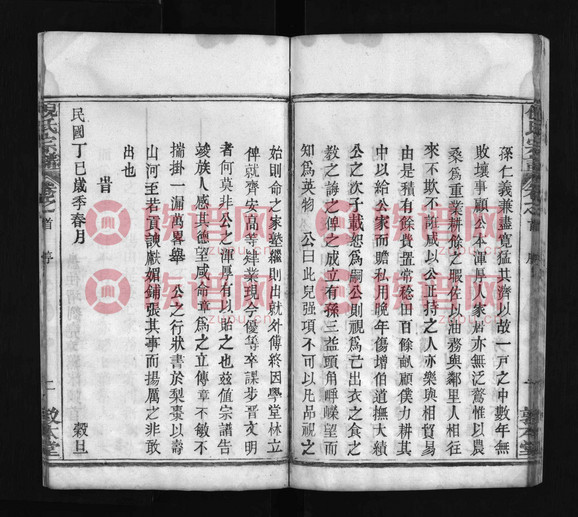 孫仁義兼盡寬猛共濟以故一戸之中數年無
敗壞事顧公本渾厚人家君亦無泛驚惟以農
桑爲重業耕餘之暇佐以油務與鄰里人相往
來不欺不詐咸以公正持之人亦樂與相貿易
由是積有餘貲置常稔田百餘畝顧僕力耕其
中以給公家而贍私用晚年傷增伯道撫大績
公之次子載恕爲嗣公則視爲己出衣之食之
教之誨之俾之成立有孫三益頭角崢嶸望而
知爲英物 公曰此兒强項不可以凡品視之
始則命之家塾繼則出就外傅終因學堂林立
俾就齊安高等肄業現今優等卒業步晋文明
者何莫非公之渾厚有以貽之也茲値宗譜告
竣族人感其德望咸命章爲之立傳章不敏不
揣掛一漏萬畧舉 公之行狀書於梨棗以壽
山河至若貢諛獻媚鋪張其事而揚厲之非敢
出也
旹
民國丁巳歲季春月 穀旦
氏宗譜
卷之首
序
敦本堂
族谱网
zupu.cn